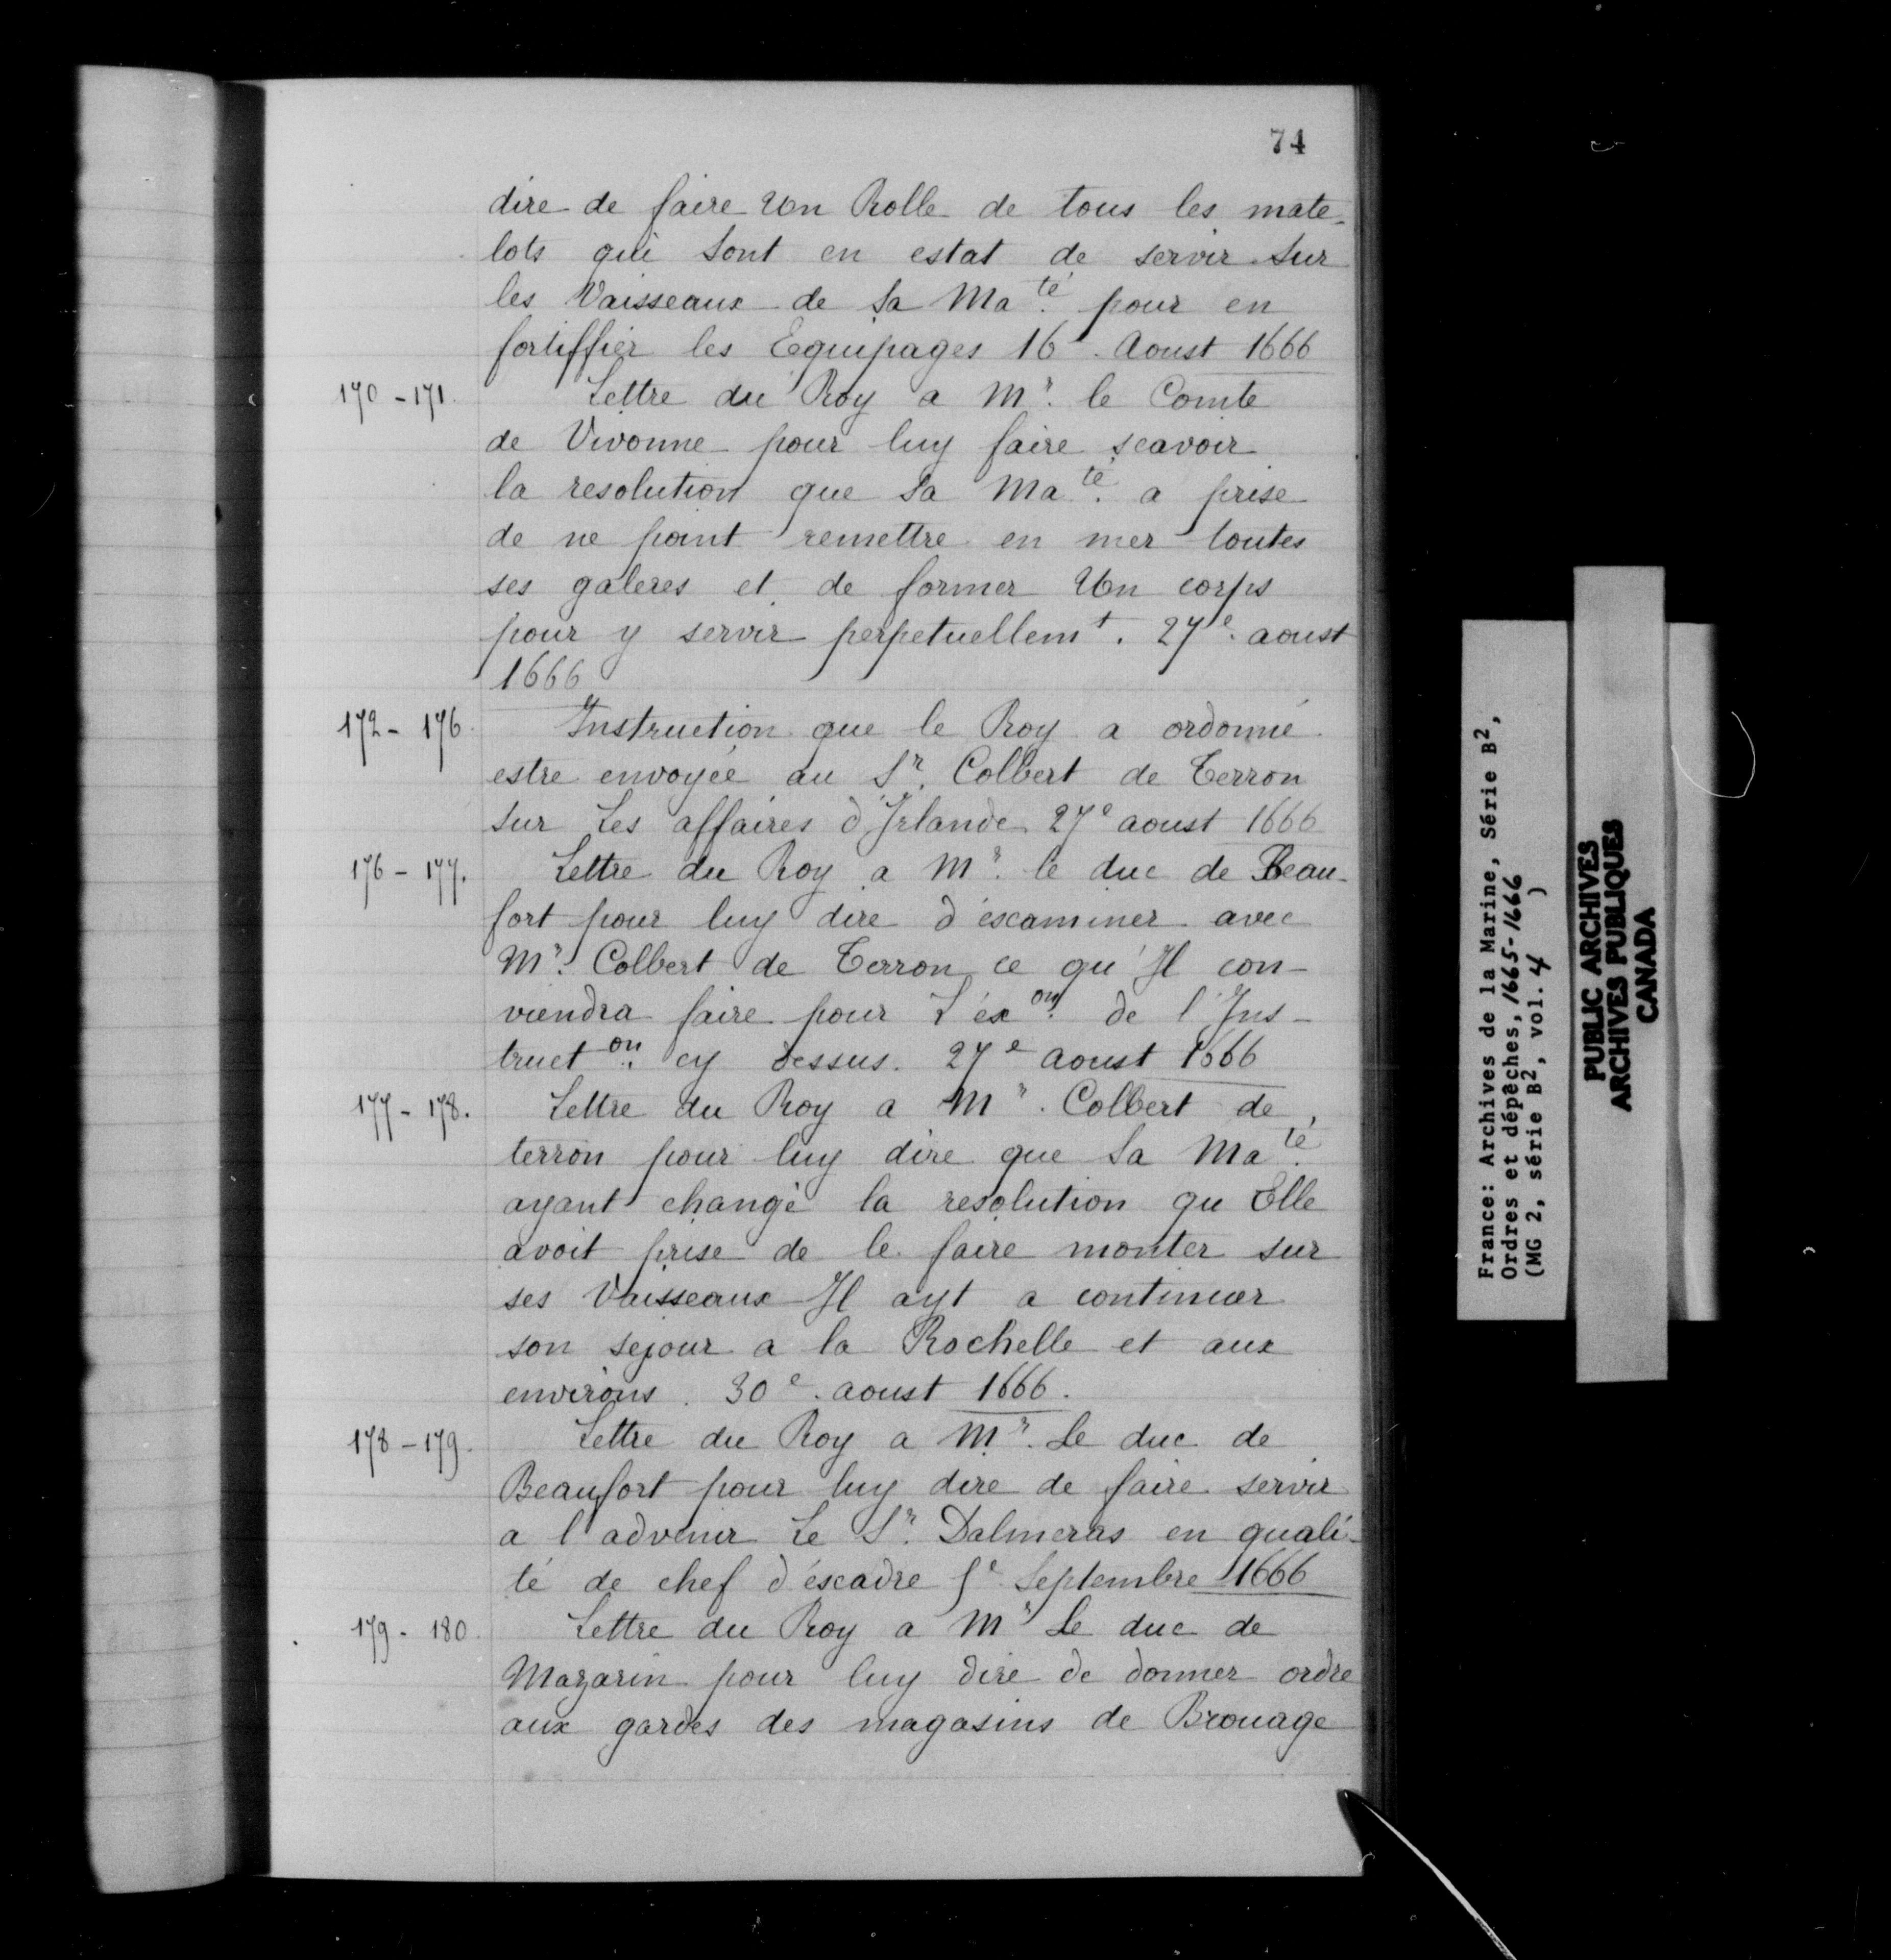 74
dire de faire Un Rolle de tous les mate-
lots qui Sont en estat de servir sur
les Vaisseaux de Sa Ma.té pour en
fortiffier les Equipages 16. Aoust 1666
170-171. Lettre du Roy a Mr. le Comte
de Vivonne pour luy faire scavoir
la resolution que Sa Ma.té a prise
de ne point remettre en mer toutes
ses galeres et de former Un corps
pour y servir perpetuellemt. 27e. aoust
1666
172-176. Instruction que le Roy a ordonné
estre envoyée au Sr. Colbert de Terron
sur Les affaires d'Irlande 27e aoust 1666
176-177. Lettre du Roy a Mr. le duc de Beau-
fort pour luy dire d'éscaminer avec
Mr. Colbert de Terron ce qu'Il con-
viendra faire pour L'éxon. de l'Ins-
truct.on cy dessus. 27e aoust 1666
177-178. Lettre du Roy a Mr. Colbert de
terron pour luy dire que Sa Ma.té
ayant changé la resolution qu'Elle
avoit prise de le faire monter sur
ses Vaisseaux Il ayt a continuer
son sejour a la Rochelle et aux
environs. 30e. aoust 1666.
178-179. Lettre du Roy a Mr. Le duc de
Beaufort pour luy dire de faire servir
a l'advenir Le Sr. Dalmeras en quali-
té de chef d'éscadre Septembre 1666
179-180. Lettre du Roy a Mr Le duc de
Mazarin pour luy dire de donner ordre
aux gardes des magasins de Brouage
France: Archives de la Marine, Série B2,
Ordres et dépêches, 1665-1666
(MG 2, série B2, vol. 4 )
PUBLIC ARCHIVES
ARCHIVES PUBLIQUES
CANADA